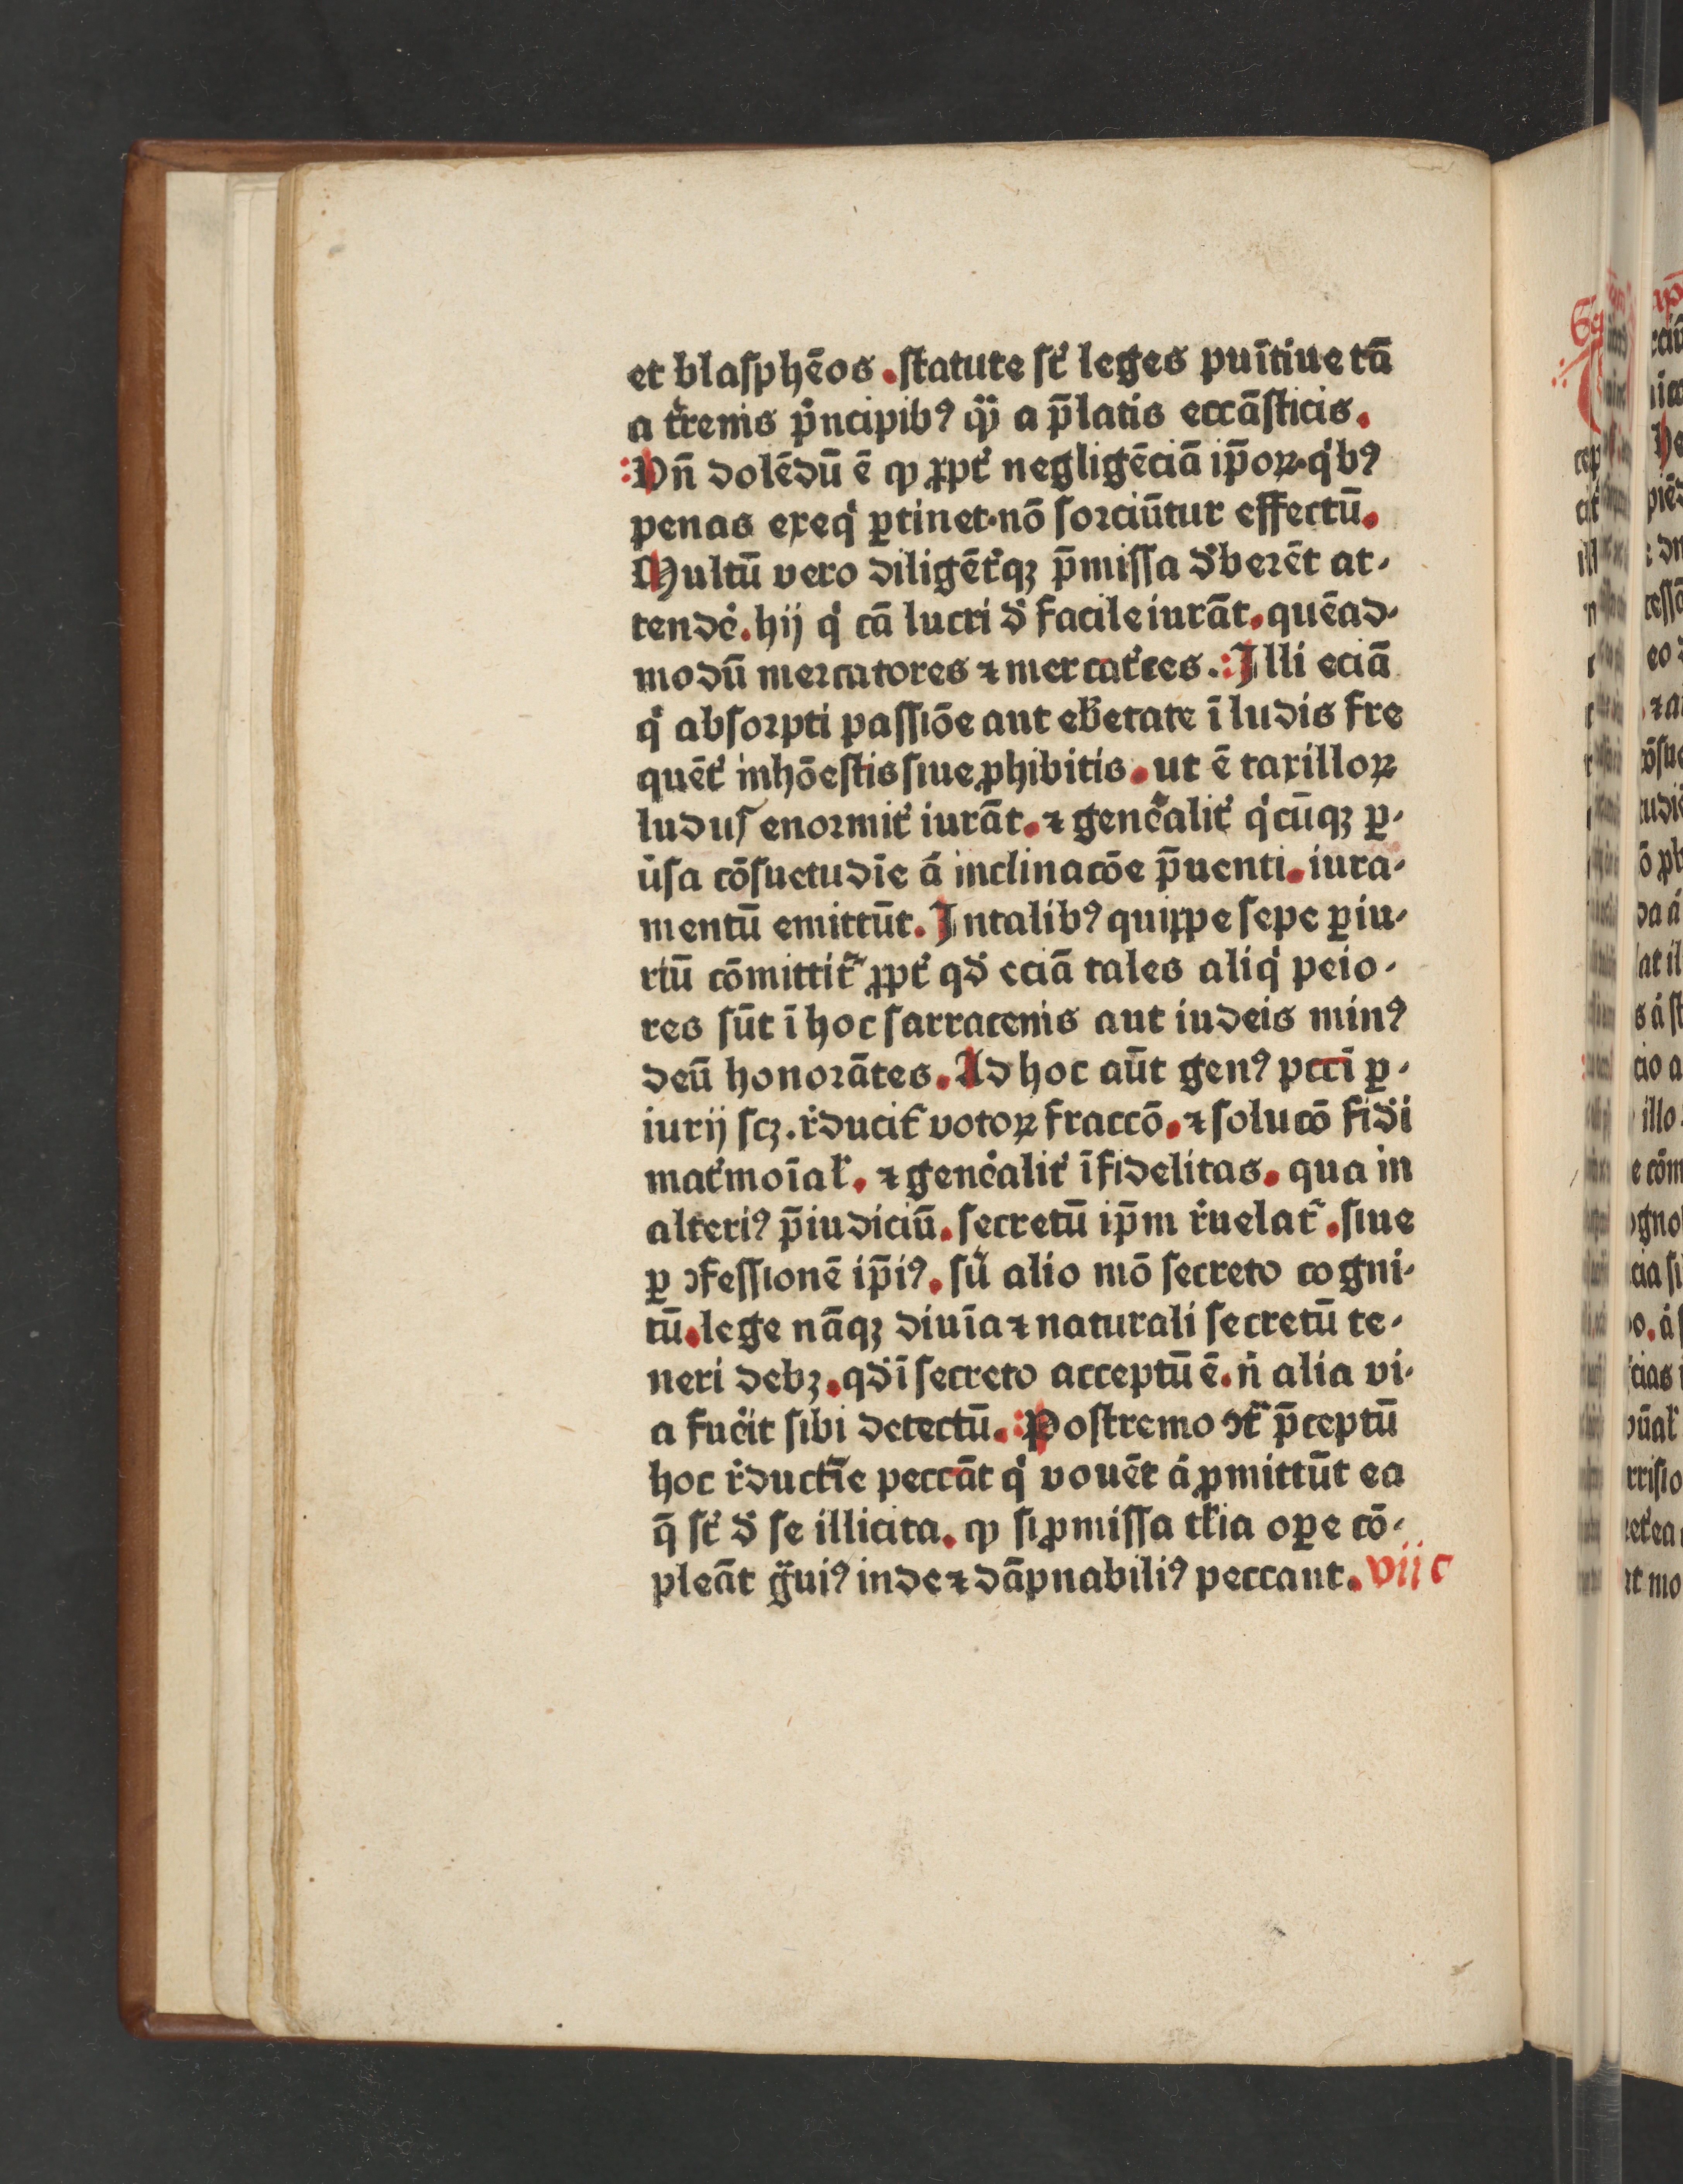 et blasphēos .statute st᷑ leges puītiue tā
a t᷑renis pͥncipibꝰ qͣꝫ a p̄latis eccāsticis.
Vn̄ dolēdū ē ꝙ ꝓpt᷑ negligēciā ip̄oꝝ·qͥbꝰ
penas exeqͥ ꝑtinet·nō sorciūtur effectū.
Multū vero diligēt᷑qꝫ p̄missa d᷑berēt at-
tende᷑.hij qͥ cā lucri d᷑ facile iurāt.quēad-
modū mercatores ⁊ mercat᷑ces. Illi eciā
qͥ absorpti passiōe aut eb᷑etate ī ludis fre
quēt᷑ inhōestis siue ꝓhibitis.ut ē taxilloꝝ
ludus enormit᷑ iurāt.⁊ gene᷑alit᷑ qͥcūqꝫ ꝑ-
u᷑sa cōsuetudīe á inclinacōe p̄uenti.iura-
mentū emittūt.In talibꝰ quippe sepe ꝑiu-
riū cōmittit᷑ ꝓpt᷑ qd᷑ eciā tales aliqͥ peio-
res sūt ī hoc sarracenis aut iudeis minꝰ
deū honorātes.Ad hoc aūt genꝰ pccī ꝑ-
iurij scꝫ.r᷑ducit᷑ votoꝝ fraccō.⁊ solucō fid᷑i
mat᷑moīal᷑.⁊ gene᷑alit᷑ īfidelitas.qua in
alteriꝰ p̄iudiciū.secretū ip̄m r᷑uelat᷑.siue
ꝑ ꝯfessionē ip̄iꝰ.su᷑ alio mō secreto cogni-
tū.lege nāqꝫ diuīa ⁊ naturali secretū te-
neri debꝫ.qd᷑ ī secreto acceptū ē.n᷑ alia vi-
a fue᷑it sibi detectū. Postremo ꝯt᷑ p̄ceptū
hoc r᷑ductīe peccāt qͥ vouēt á ꝓmittūt ea
q̄ st᷑ d᷑ se illicita.ꝙ si ꝓmissa t᷑lia oꝑe cō-
pleāt gͣuiꝰ inde ⁊ dāpnabiliꝰ peccant. vii c